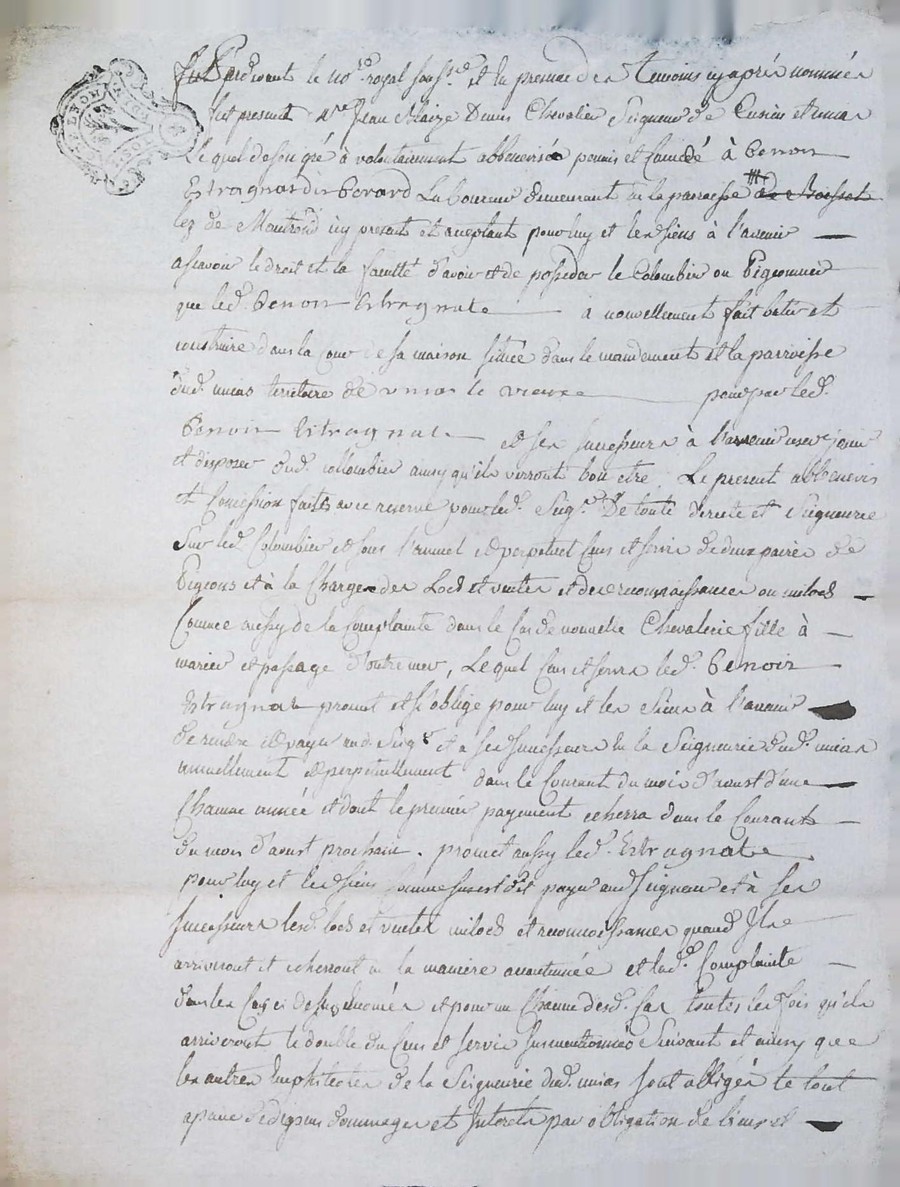 Pardevant le no.re royal souss.né et en presence des temoins cy après nommés
fut present M.re Jean Blaize Denis Chevalier Seigneur de Cuzieu et unias
Lequel de son gré à volontairement abbenevisé permis et Concedé à benoir
Estragnat dit berard Laboureur demeurant en la parroisse de Boisset
lez de Montrond icy present et acceptant pour luy et les siens à l'avenir
ascavoir le droit et la faculté d'avoir et de posseder le Colombier ou Pigeonnier
que led. benoir Estragnate a nouvellement fait batir et
construire dans la cour de sa maison scituée dans le mandement et la parroisse
dud. unias territoire de unias le vieux pour par led.
benoir Estragnate et ses successeurs à l'avenir user jouir
et disposer dud. collombier ainsy qu'ils verront bon etre. Le present abbenevis
et Concession faites avec reserve pour led. Seig.r De toute directe et Seigneurie
Sur led. Colombier et sous l'annuel et perpetuel Cens et servis de deux paires de
Pigeons et à la Charge des Lods et ventes et des reconnoissances ou milods
Comme aussy de la Complainte dans le Cas de nouvelle Chevalerie fille à
marier et passage d'outre mer, Lequel Cens et servis led. benoir
Estragnat promet et s'oblige pour luy et les Siens à l'avenir
de rendre et payer aud. Seig.r et a ses successeurs en la Seigneurie dud. unias
annuellement et perpetuellement dans le Courant du mois d'aoust d'une
Chacune année et dont le premier payement echerra dans le Courant
du mois d'aoust prochain. promet aussy led. Estragnate
pour luy et les siens Comme susest dit payer aud Seigneur et à ses
successeurs lesd. lods et ventes milods et reconnoissances quand Ils
arriveront et echerront en la maniere accoutumée et lad. Complainte
dans les Cas cy dessus enoncés et pour un Chacun desd. Cas toutes les fois qu'ils
arriveront le double du Cens et servis susmentionnés Suivant et ainsy que
les autres Emphiteotes de la Seigneurie dud. unias sont obligés le tout
a peine de depens dommages et Interets par obligation de biens et